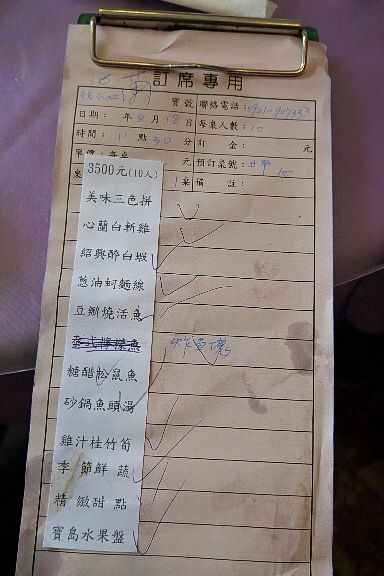 訂席專用
寶號 聯絡電話：0921-907333
日期： 年8月18日 每桌人數：10
時間：11點30分 訂金： 元
元 預訂桌號：
1桌 備註：
3500元(10人)
美味三色拼
心蘭白斬雞
紹興醉白蝦
蔥油蚵麵線
豆瓣燒活魚
糖醋松鼠魚
砂鍋魚頭湯
雞汁桂竹筍
季節鮮蔬
精緻甜點
寶島水果盤